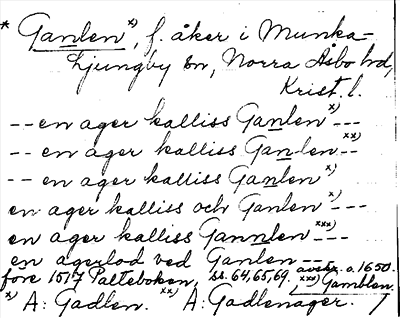 * Ganlen x), f. åker i Munka-
Ljungby sn, Norra Åsbo hd,
Krist. l.
-- en ager kalliss Ganlen x) ---
-- en ager kalliss Ganlen xx) --
-- en ager kalliss Ganlen x)
en ager kalliss och Ganlen x) ---
en ager kalliss Gannlen xxx) ---
en agerlod ved Ganlen --
före 1517 Palteboken, ss. 64, 65, 69. avskr. o. 1650.
x) A: Gadlen. xx) A: Gadlenager. xxx) Gamblen.